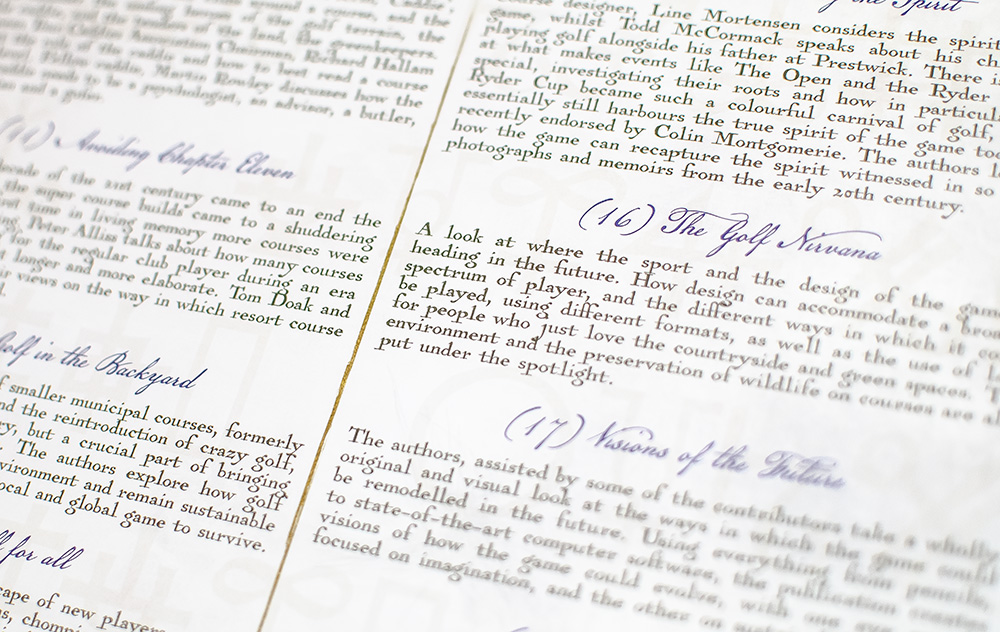 around a course, and the
of the golf terrain, the
the land, the greenkeepers.
Caddies Association Chairman, Richard Hallam
role of the caddie and how to best read a course
Caddie, Martin Rowley discusses how the
to be a psychologist, an advisor, a butler,
and a guide.
(11) Avoiding Chapter Eleven
decade of the 21st century came to an end the
the super course builds came to a shuddering
first time in living memory more courses were
Peter Alliss talks about how many courses
for the regular club player during an era
longer and more elaborate. Tom Doak and
their views on the way in which resort course
Golf in the Backyard
of smaller municipal courses, formerly
and the reintroduction of crazy golf,
but a crucial part of bringing
The authors explore how golf
environment and remain sustainable
local and global game to survive.
for all
of new players
the Spirit
designer, Line Mortensen considers the spirit
game, whilst Todd McCormack speaks about his
playing golf alongside his father at Prestwick. There
at what makes events like The Open and the Ryder
special, investigating their roots and how in
Ryder Cup became such a colourful carnival of golf,
essentially still harbours the true spirit of the game
recently endorsed by Colin Montgomerie. The authors
how the game can recapture the spirit witnessed in so
photographs and memoirs from the early 20th century.
(16) The Golf Nirvana
A look at where the sport and the design of the game
heading in the future. How design can accommodate a
spectrum of player, and the different ways in which it
be played, using different formats, as well as the use of
for people who just love the countryside and green spaces.
environment and the preservation of wildlife on courses are
put under the spotlight.
(17) Visions of the Future
The authors, assisted by some of the contributors take a wholly
original and visual look at the ways in which the game could
be remodelled in the future. Using everything from pencils,
to state-of-the-art computer software, the publication creates
visions of how the game could evolve, with one
focused on imagination, and the other on